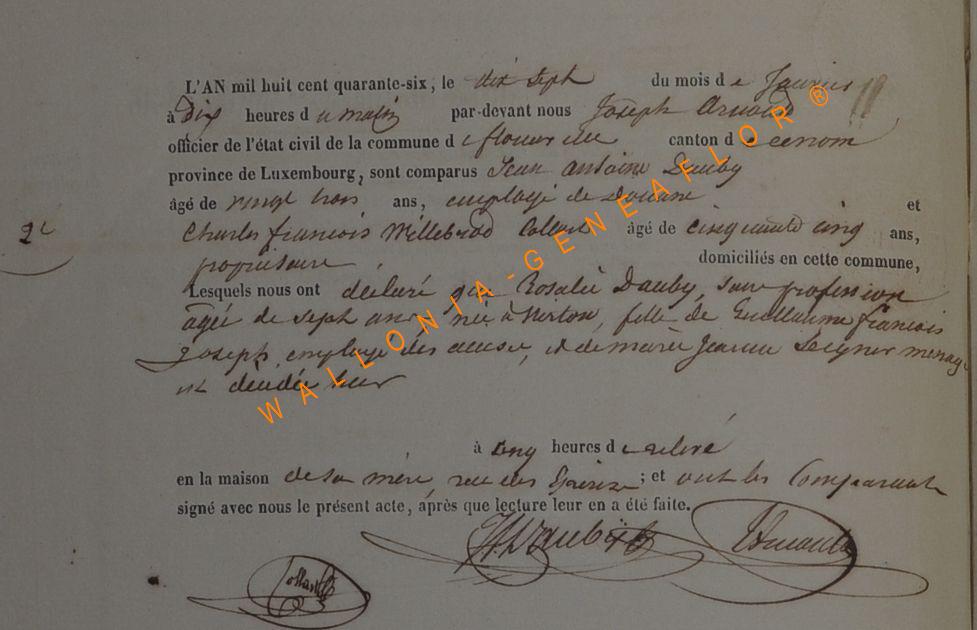 L'AN mil huit cent quarante-six, le dix sept du mois de Janvier
à Dix heures du matin par-devant nous Joseph Arnould
officier de l'état civil de la commune de florenville canton de
province de Luxembourg, sont comparus Jean Antoine Dauby
âgé de vingt trois ans, employé de Douane et
2e
Charles françois Willebrod Collard âgé de cinquante cinq ans,
propriétaire, domiciliés en cette commune,
Lesquels nous ont déclaré que Rosalie Dauby, sans profession
agée de sept ans née à Virton, fille de Guillaume françois
Joseph, employé des accises, et de marie Jeanne
est décédée hier
à cinq heures de relevé
en la maison de sa mère, rue des ; et ont les Comparants
signé avec nous le présent acte, après que lecture leur en a été faite.
Dauby Arnould
Collard
WALLONIA-GENEAFLOR ®